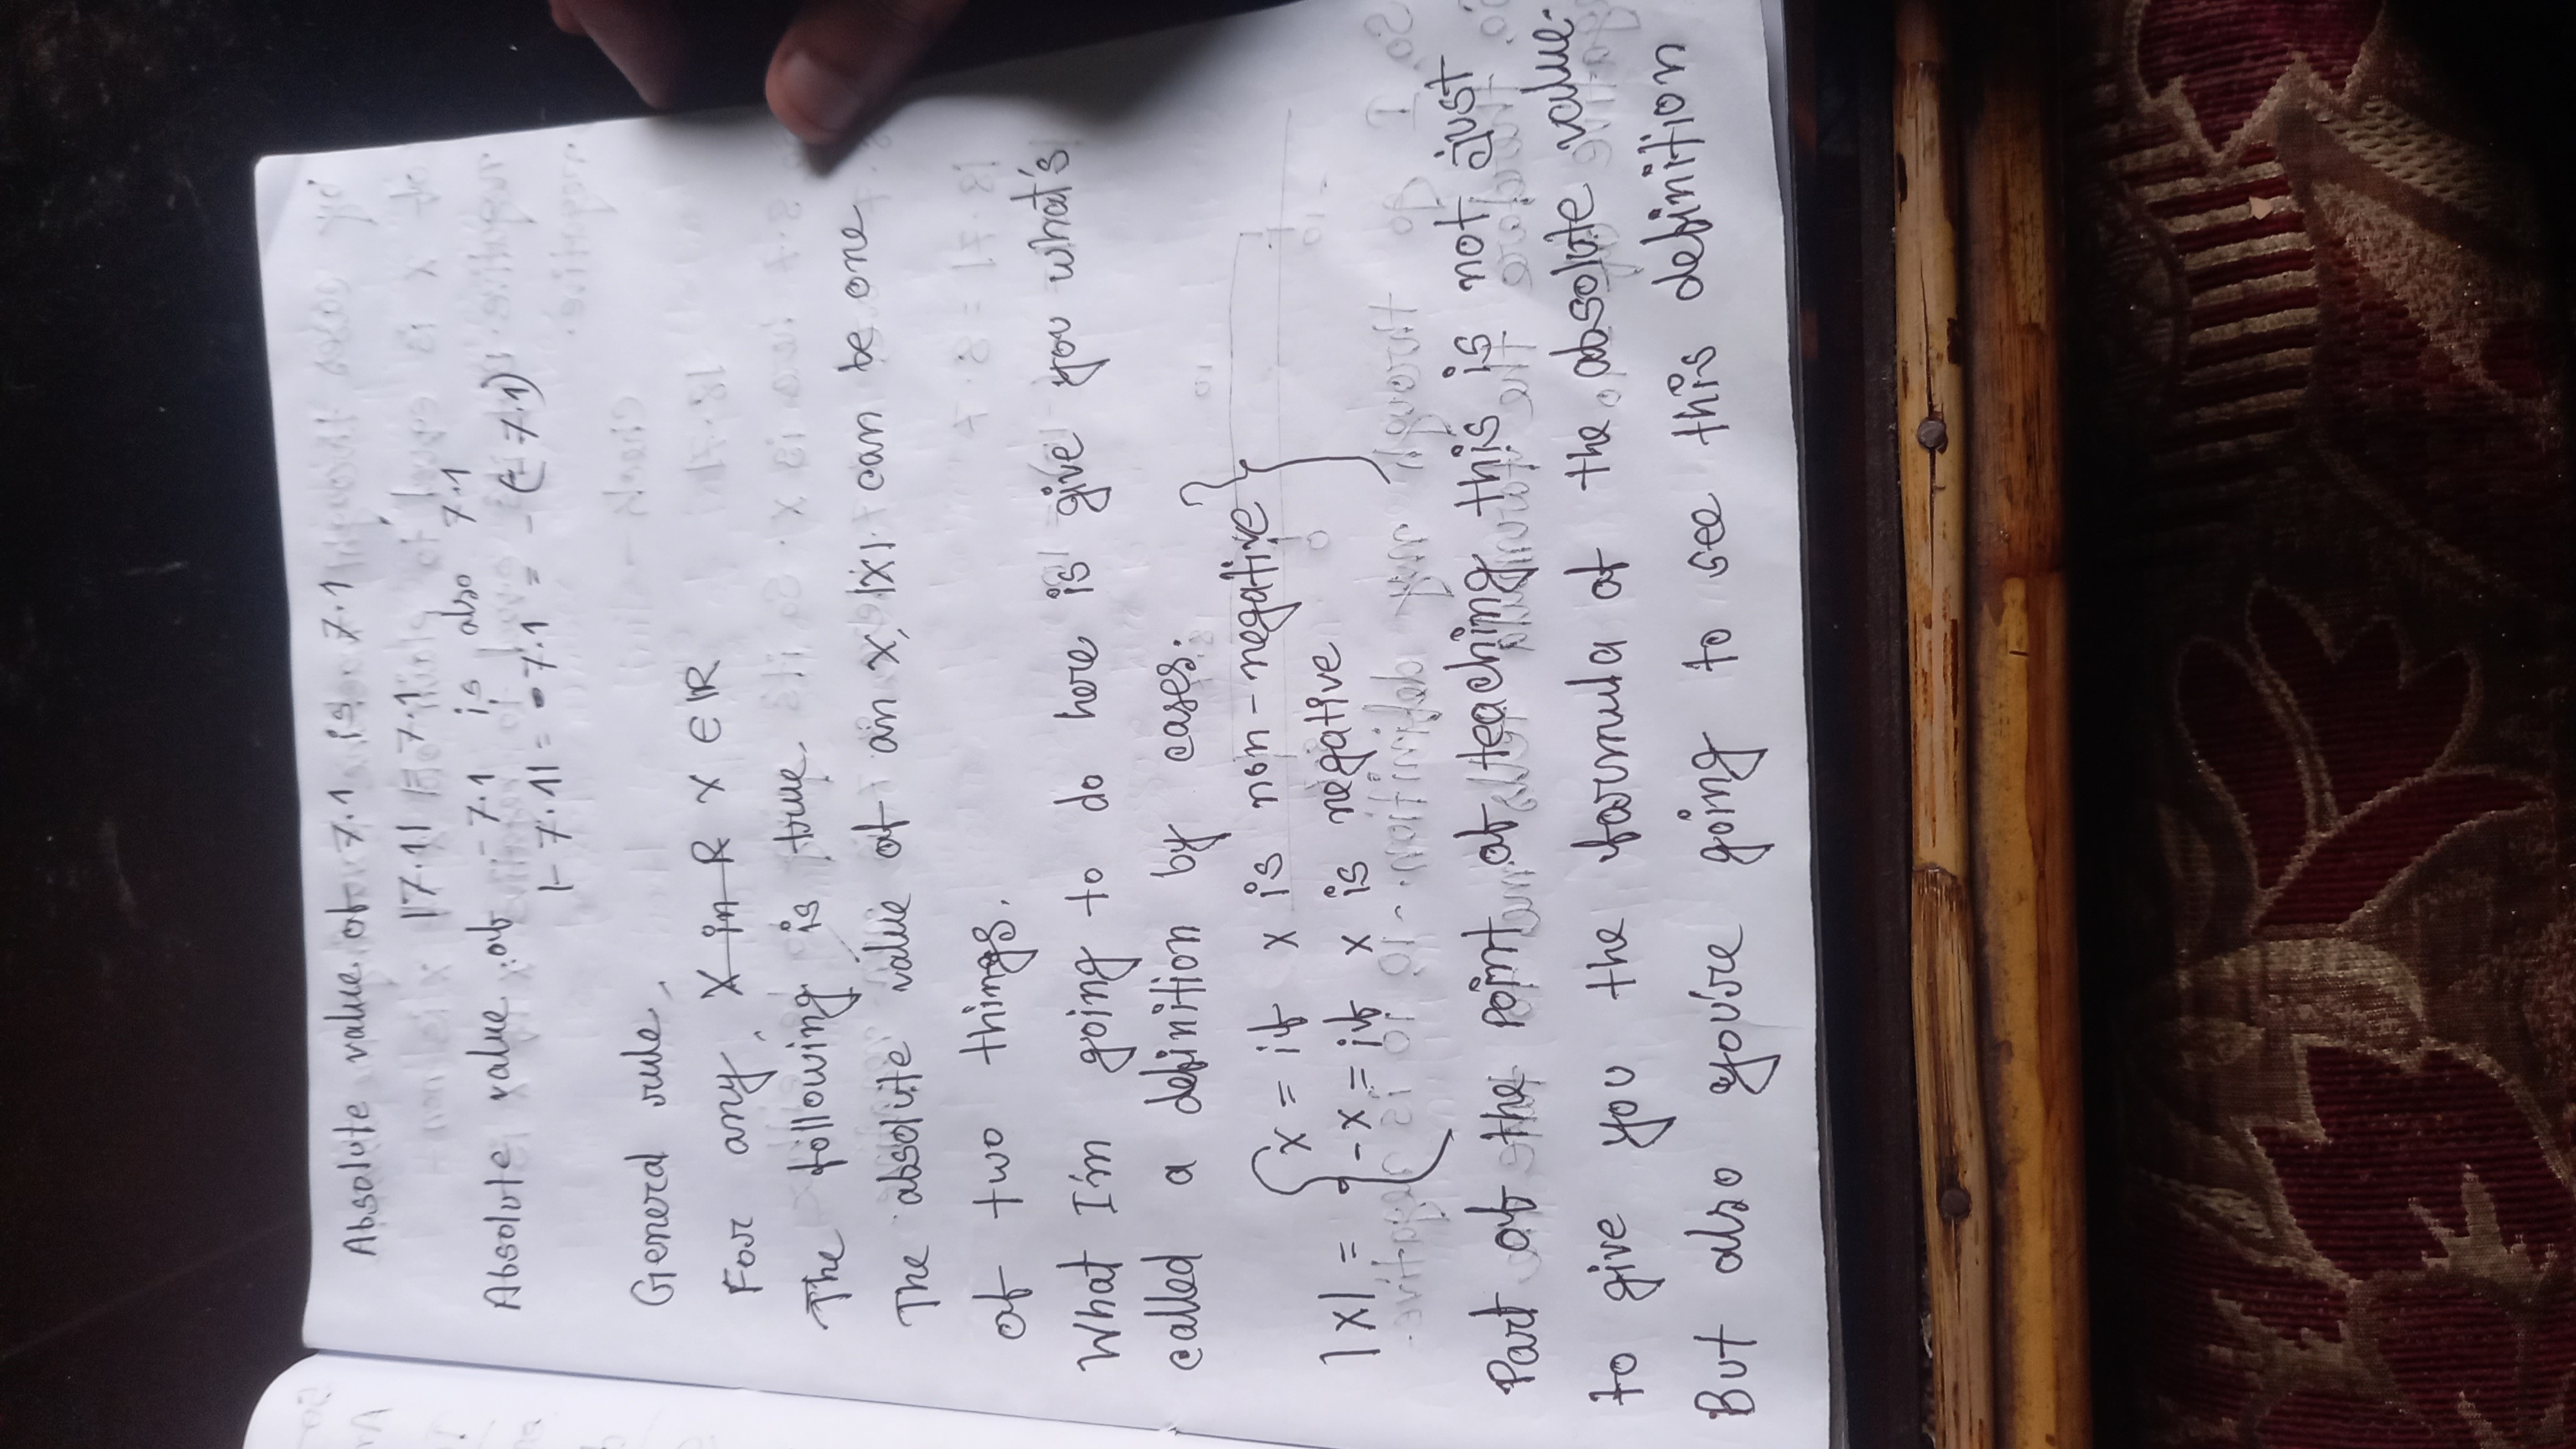 Absolute value of 7.1 is 7.1
|7.1| = 7.1
Absolute value of -7.1 is also 7.1
|-7.1| = -7.1 = -(-7.1)
General rule,
For any, X in R x ∈ ℝ
The following is true.
The absolute value of an x, |x| can be one
of two things.
What I'm going to do here is give you what's
called a definition by cases.
|x| = { x = if x is non-negative }
-x = if x is negative
Part of the point of teaching this is not just
to give you the formula of the absolute value.
But also you're going to see this definition